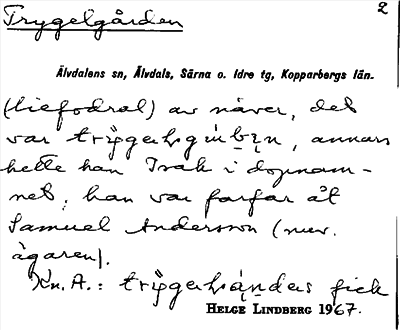 Trygelgården
2
Älvdalens sn, Älvdals, Särna o. Idre tg, Kopparbergs län.
(liefodral) av näver, det
var annars
hette han Isak i dopnam-
net; han var farfar åt
Samuel Andersson (nuv.
ägaren).
Kn. A.: fick
HELGE LINDBERG 1967.